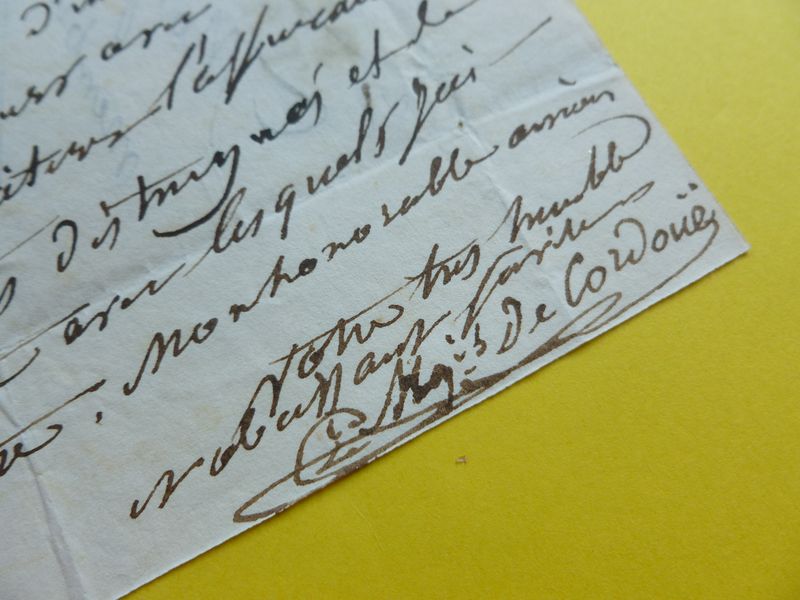 d'un
avec
l'assurance
distingués et de
avec lesquels j'ai
Mon honorable ancien
votre très humble
& obéissant serviteur
Le Mqis De Cordoüe